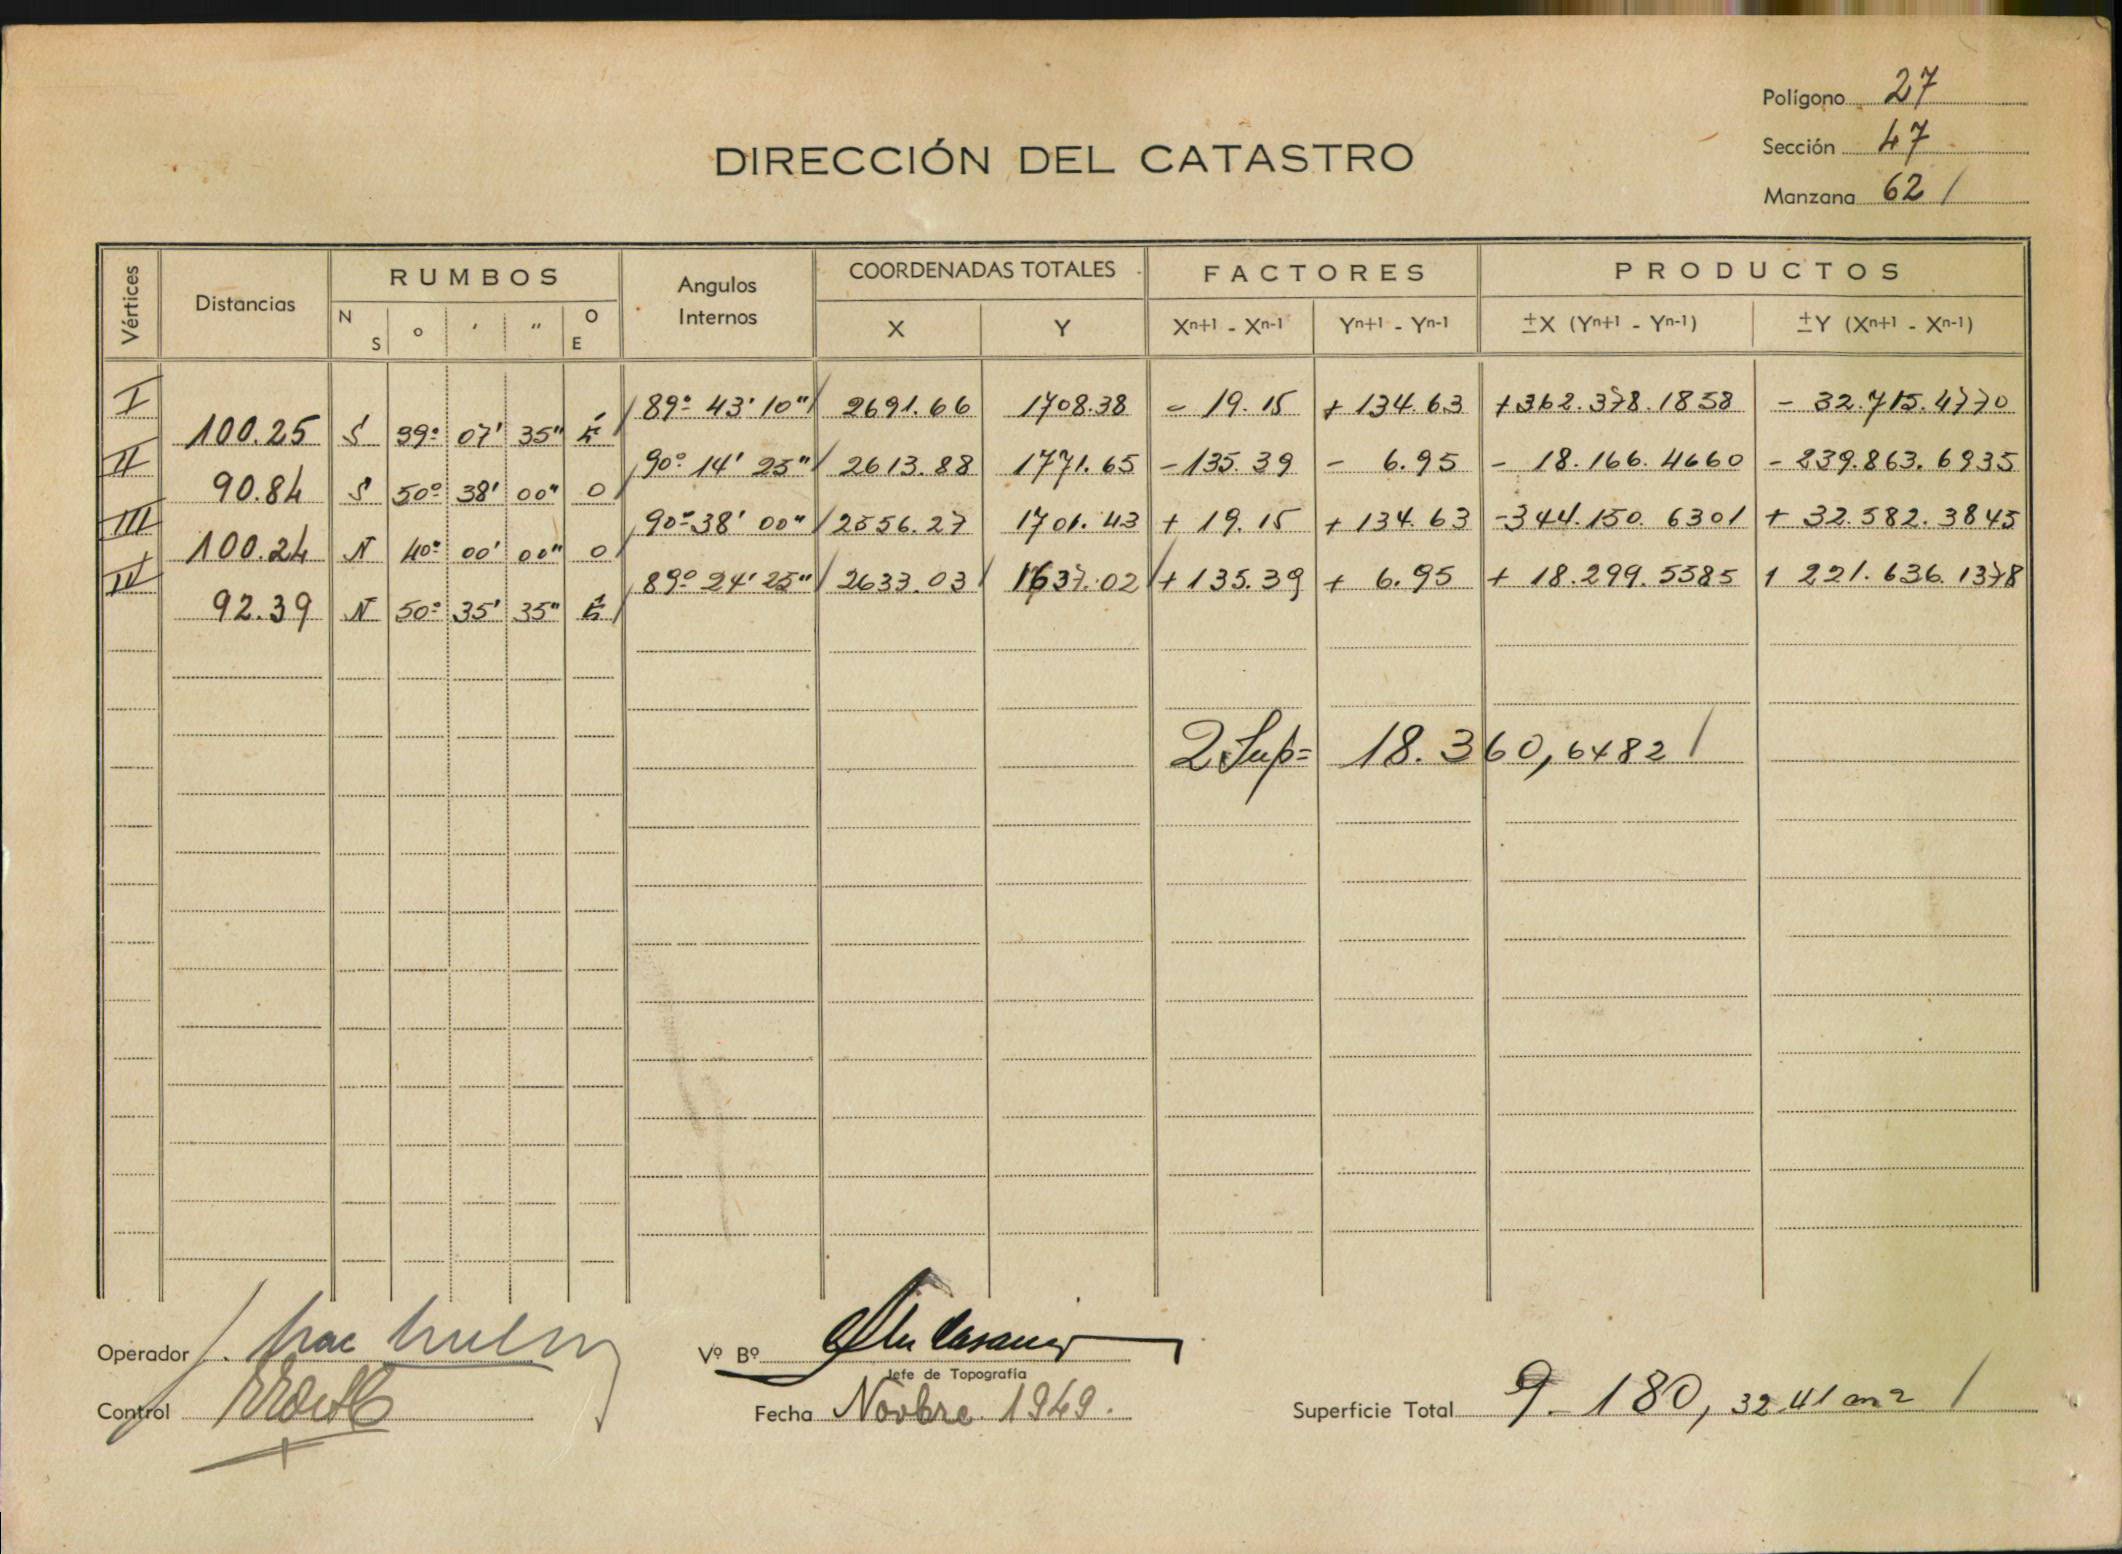 Polígono 27
Sección 47
Manzana 62 /
DIRECCIÓN DEL CATASTRO
Vértices Distancias RUMBOS Angulos Internos COORDENADAS TOTALES FACTORES PRODUCTOS
N S o ' " O E X Y Xn+1 - Xn-1 Yn+1 - Yn-1 ±X (Yn+1 - Yn-1) ±Y (Xn+1 - Xn-1)
I 89º 43' 10" 2691.66 1708.38 - 19.15 + 134.63 +362.378.1858 - 32.715.4770
100.25 S 39º 07' 35" E
II 90º 14' 25" 2613.88 1771.65 -135.39 - 6.95 - 18.166.4660 - 239.863.6935
90.84 S 50º 38' 00" O
III 90º 38' 00" 2556.27 1701.43 + 19.15 + 134.63 -344.150.6301 + 32.582.3845
100.24 N 40º 00' 00" O
IV 89º 24' 25" 2633.03 1637.02 +135.39 + 6.95 + 18.299.5585 + 221.636.1378
92.39 N 50º 35' 35" E
2 Sup= 18.360,6482 /
Operador
Vº Bº
Jefe de Topografía
Control
Fecha Novbre. 1949.
Superficie Total 9.180,32.41 m2 /